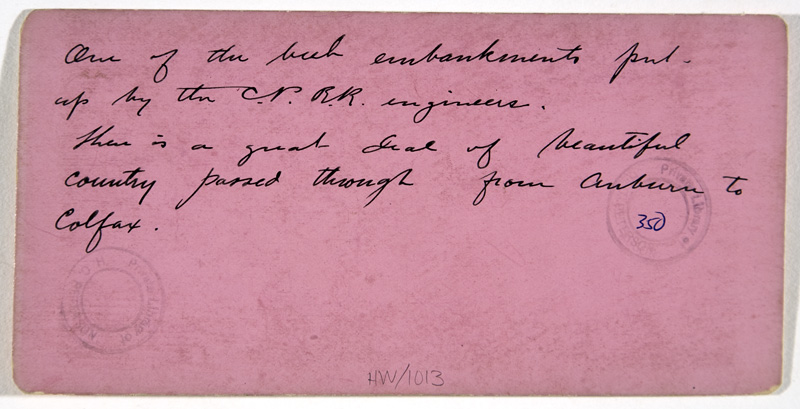 One of the best embankments put
up by the C.P. R.R. engineers.
There is a great deal of beautiful
country passed through from Auburn to
Colfax.
350
Private Library of
Private Library
HW/1013